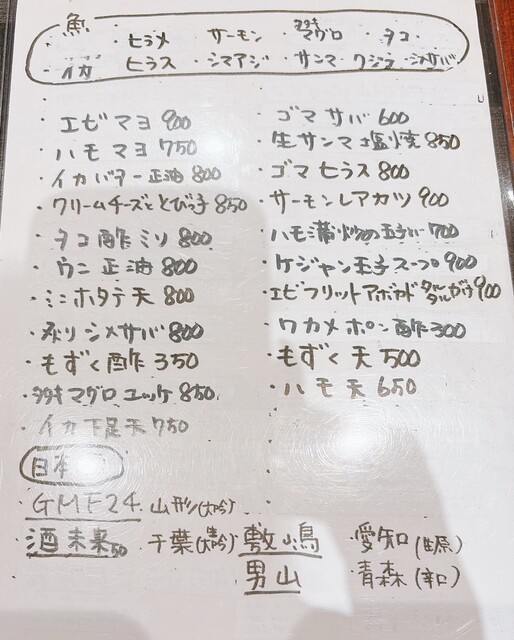 魚
・ヒラメ ・サーモン ・タタキマグロ ・タコ
・イカ ・ヒラス ・シマアジ ・サンマ ・クジラ ・シメサバ
・エビマヨ 900
・ハモマヨ 750
・イカバター正油 800
・クリームチーズととびっ子 850
・タコ酢ミソ 800
・ウニ正油 800
・ミニホタテ天 800
・炙りシメサバ 800
・もずく酢 350
・タタキマグロユッケ 850
・イカ下足天 750
・ゴマサバ 600
・生サンマ塩焼 850
・ゴマヒラス 800
・サーモンレアカツ 900
・ハモ蒲炊の玉子 700
・ケジャン玉子スープ 900
・エビフリットアボカドタルタルがけ 900
・ワカメポン酢 300
・もずく天 500
・ハモ天 650
日本
GMF24 ・山形(大吟)
酒未来50 ・千葉(大吟)
敷島 ・愛知(生原)
男山 ・青森(辛口)